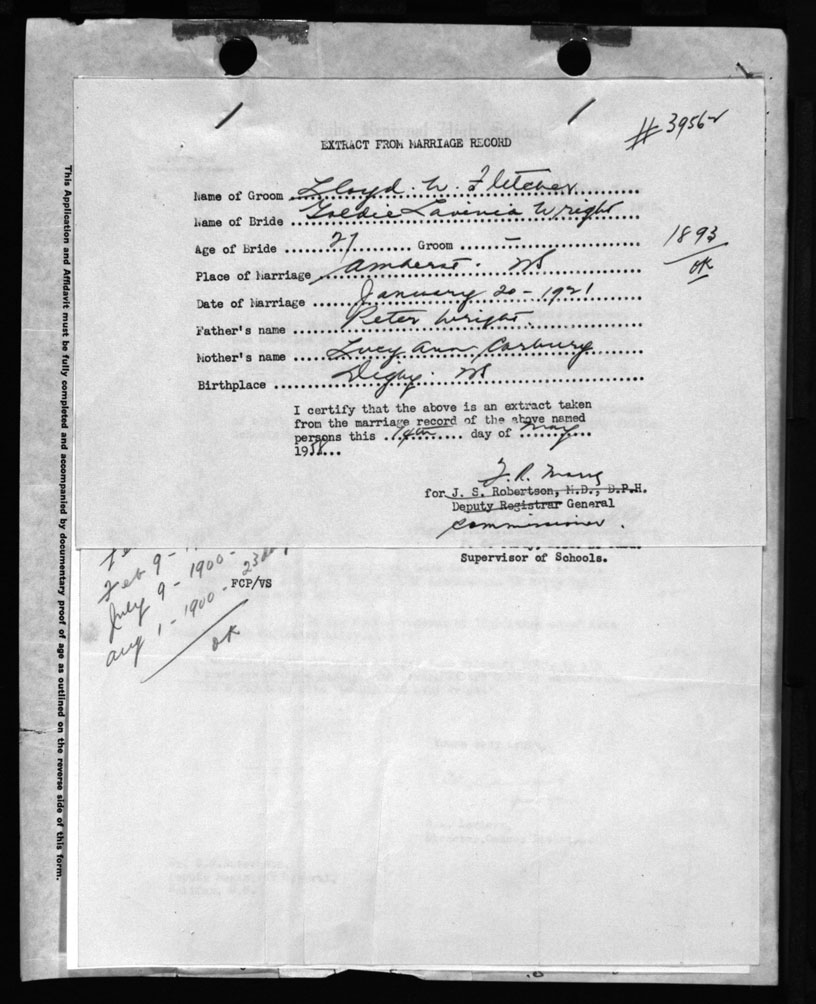 # 3956-
EXTRACT FROM MARRIAGE RECORD
Name of Groom Lloyd. W. Fletcher
Name of Bride Goldie Lavinia Wright
Age of Bride 27 Groom -
1893
OK
Place of Marriage Amherst. NS
Date of Marriage January 20 - 1921
Father's name Peter Wright.
Mother's name Lucy Ann Carbury
Birthplace Digby. NS
I certify that the above is an extract taken
from the marriage record of the above named
persons this 14th day of May
1958
for J. S. Robertson, M.D., D.P.H.
Deputy Registrar General
Commissioner.
Supervisor of Schools.
Feb 9 -
July 9 - 1900 -
Aug 1 - 1900 - 23
OK
FCP/VS
This Application and Affidavit must be fully completed and accompanied by documentary proof of age as outlined on the reverse side of this form.